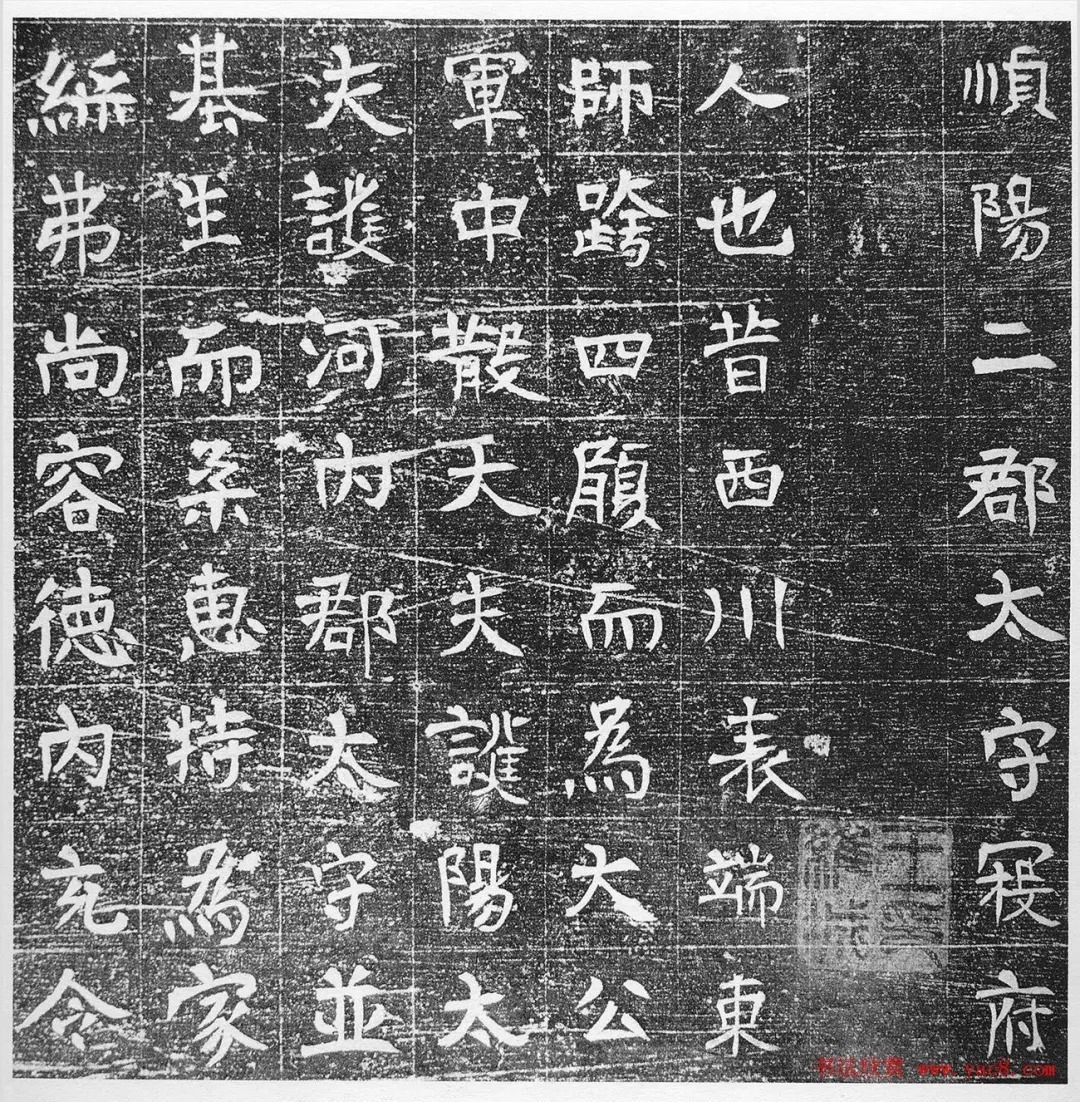 順陽二郡太守寇府
人也昔西川表端東
師跨四履而為大公
軍中散大夫護陽太
夫護河内郡太守並
基生而柔惠特為家
弗尚容德内充令